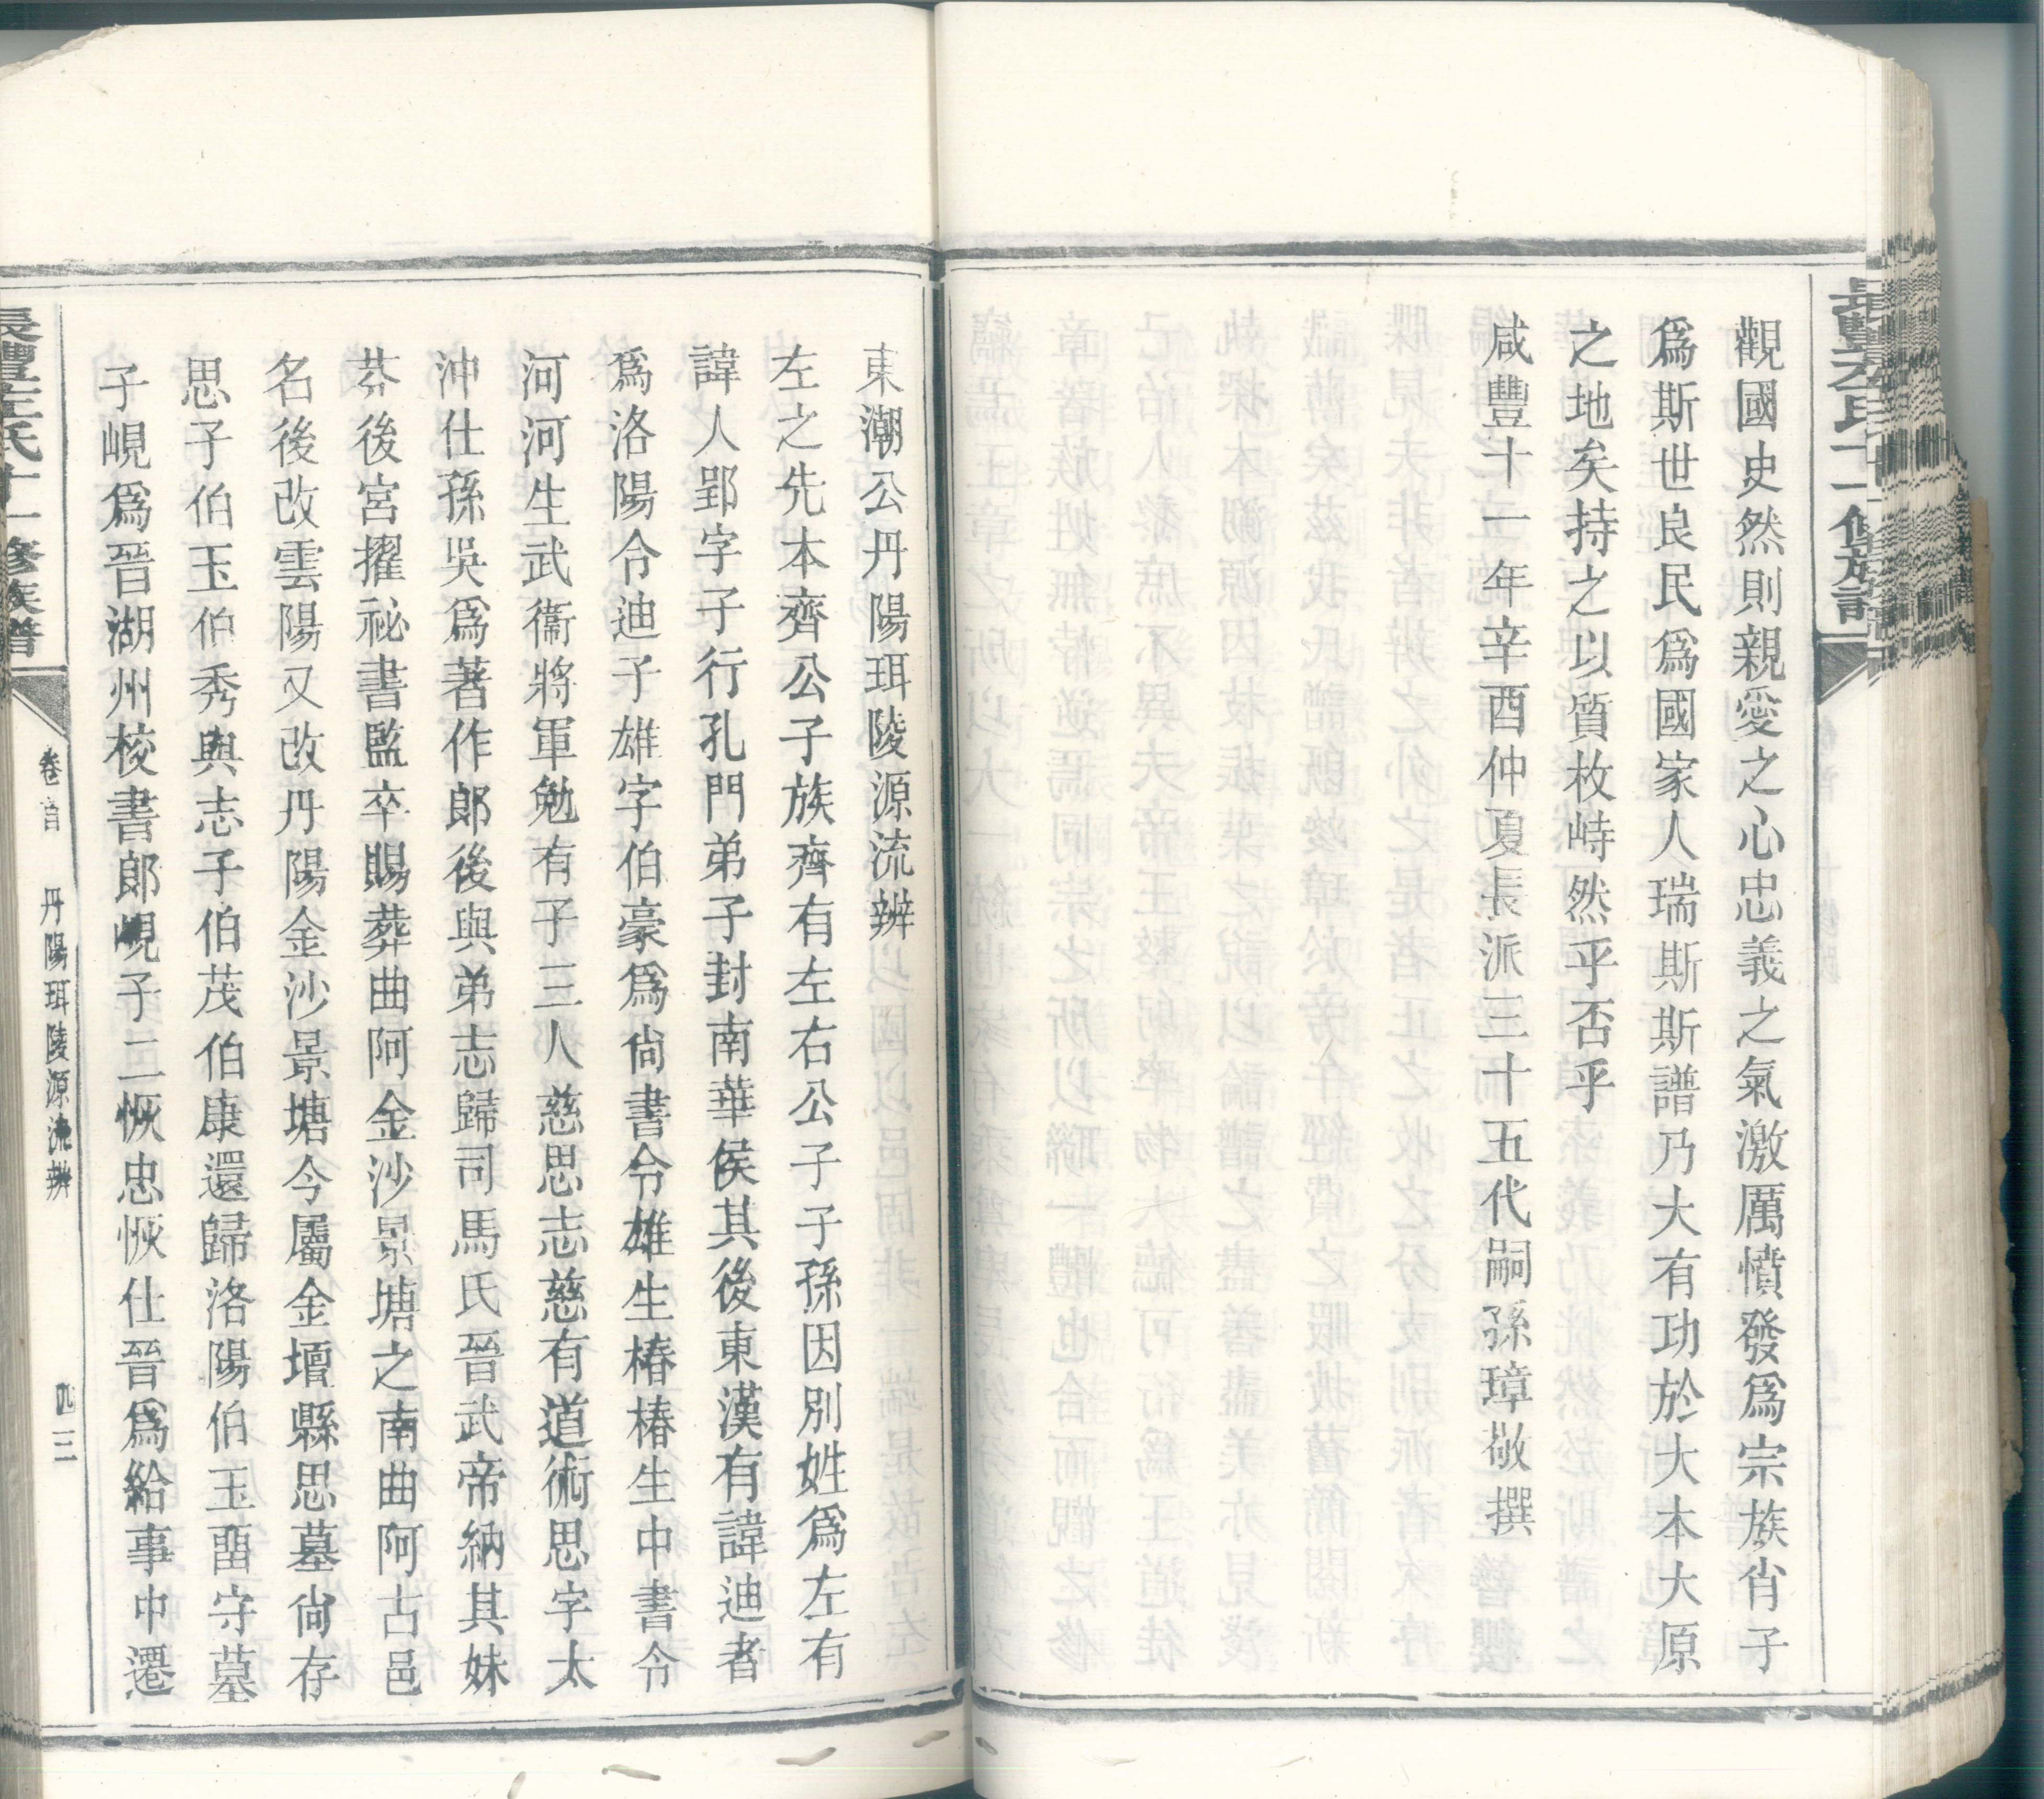 觀國史然則親愛之心忠義之氣激厲憤發爲宗族肖子
爲斯世良民爲國家人瑞斯斯譜乃大有功於大本大原
之地矣持之以質枚峙然乎否乎
咸豐十一年辛酉仲夏長派三十五代嗣孫璋敬撰
東潮公丹陽珥陵源流辨
左之先本齊公子族齊有左右公子子孫因別姓爲左有
諱人郢字子行孔門弟子封南華侯其後東漢有諱迪者
爲洛陽令迪子雄字伯豪爲尙書令雄生椿椿生中書令
河河生武衞將軍勉有子三人慈思志慈有道術思字太
沖仕孫吳爲著作郎後與弟志歸司馬氏晉武帝納其妹
芬後宮擢祕書監卒賜葬曲阿金沙景塘之南曲阿古邑
名後改雲陽又改丹陽金沙景塘今屬金壇縣思墓尙存
思子伯玉伯秀與志子伯茂伯康還歸洛陽伯玉畱守墓
子峴爲晉湖州校書郎峴子二恢忠恢仕晉爲給事中遷
長豐左氏十一修族譜
卷首
丹陽珥陵源流辨
四三